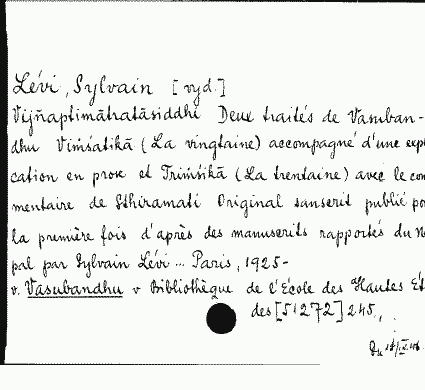 Lévi, Sylvain [vyd.]
Vijñaptimātratāsiddhi Deux traités de Vasuban-
dhu Viṁśatikā (La vingtaine) accompagné d'une expl
cation en prose et Triṁśikā (La trentaine) avec le com
mentaire de Sthiramati Original sanscrit publié po
la première fois d'après des manuscrits rapportés du Né
pal par Sylvain Lévi ... Paris, 1925-
v. Vasubandhu v Bibliothèque de l'École des Hautes Ét
des [51272] 245,